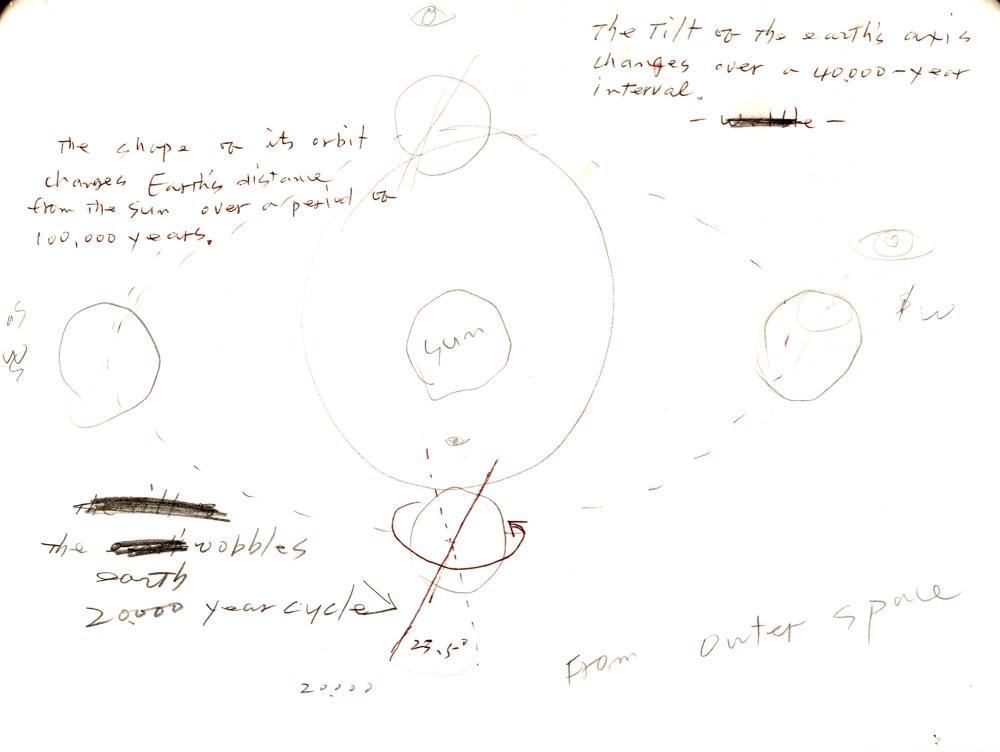 The Tilt of the earth's axis
changes over a 40,000-year
interval.
The shape of its orbit
changes Earth's distance
from the sun over a period of
100,000 years.
sun
The wobbles
earth
20,000 year cycle
23.5°
20,000
From outer space